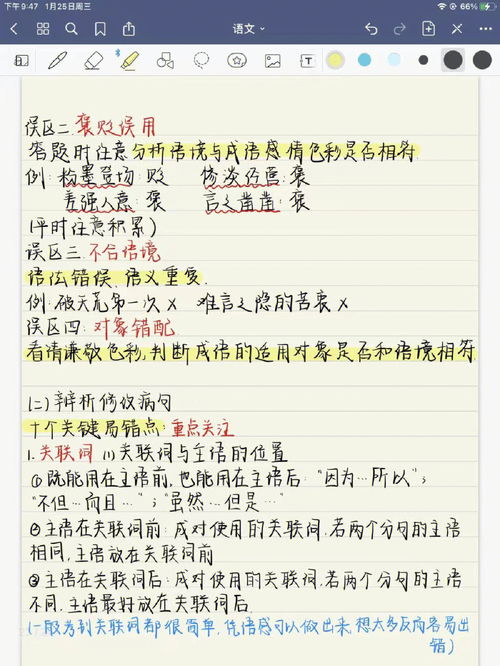 下午9:47 1月25日周三
66%
语文
误区二.褒贬误用
答题时注意分析语境与成语感情色彩是否相符
例:粉墨登场:贬 修浚
差强人意:褒 言之凿凿:褒
(平时注意积累)
误区三.不合语境
语法错误,语义重复.
例:破天荒第一次× 难言之隐的苦衷×
误区四:对象错配
看清谦敬色彩,判断成语的适用对象是否和语境相符
(二)辨析修改病句
十个关键易错点:重点关注
1.关联词 (1)关联词与主语的位置
①既能用在主语前,也能用在主语后:"因为…所以";
"不但…而且…";"虽然…但是…"
②主语在关联词前:成对使用的关联词,若两个分句的主语
相同,主语放在关联词前
③主语在关联词后:成对使用的关联词,若两个分句的主语
不同,主语最好放在关联词后.
(一般考到关联词都很简单,凭语感可以做出来,想太多反而容易出
错)